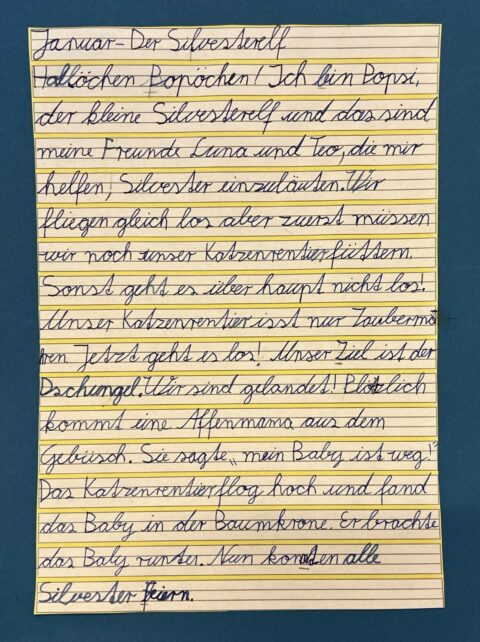 Januar - Der Silvesterelf
Hallöchen Popöchen! Ich bin Popsi,
der kleine Silvesterelf und das sind
meine Freunde Luna und Teo, die mir
helfen, Silvester einzuläuten. Wir
fliegen gleich los aber zuerst müssen
wir noch unser Katzenrentier füttern.
Sonst geht es über haupt nicht los!
Unser Katzenrentier isst nur Zaubermö
hren. Jetzt geht es los! Unser Ziel ist der
Dschungel. Wir sind gelandet! Plötzlich
kommt eine Affenmama aus dem
Gebüsch. Sie sagte „mein Baby ist weg!"
Das Katzenrentier flog hoch und fand
das Baby in der Baumkrone. Er brachte
das Baby runter. Nun konnten alle
Silvester feiern.